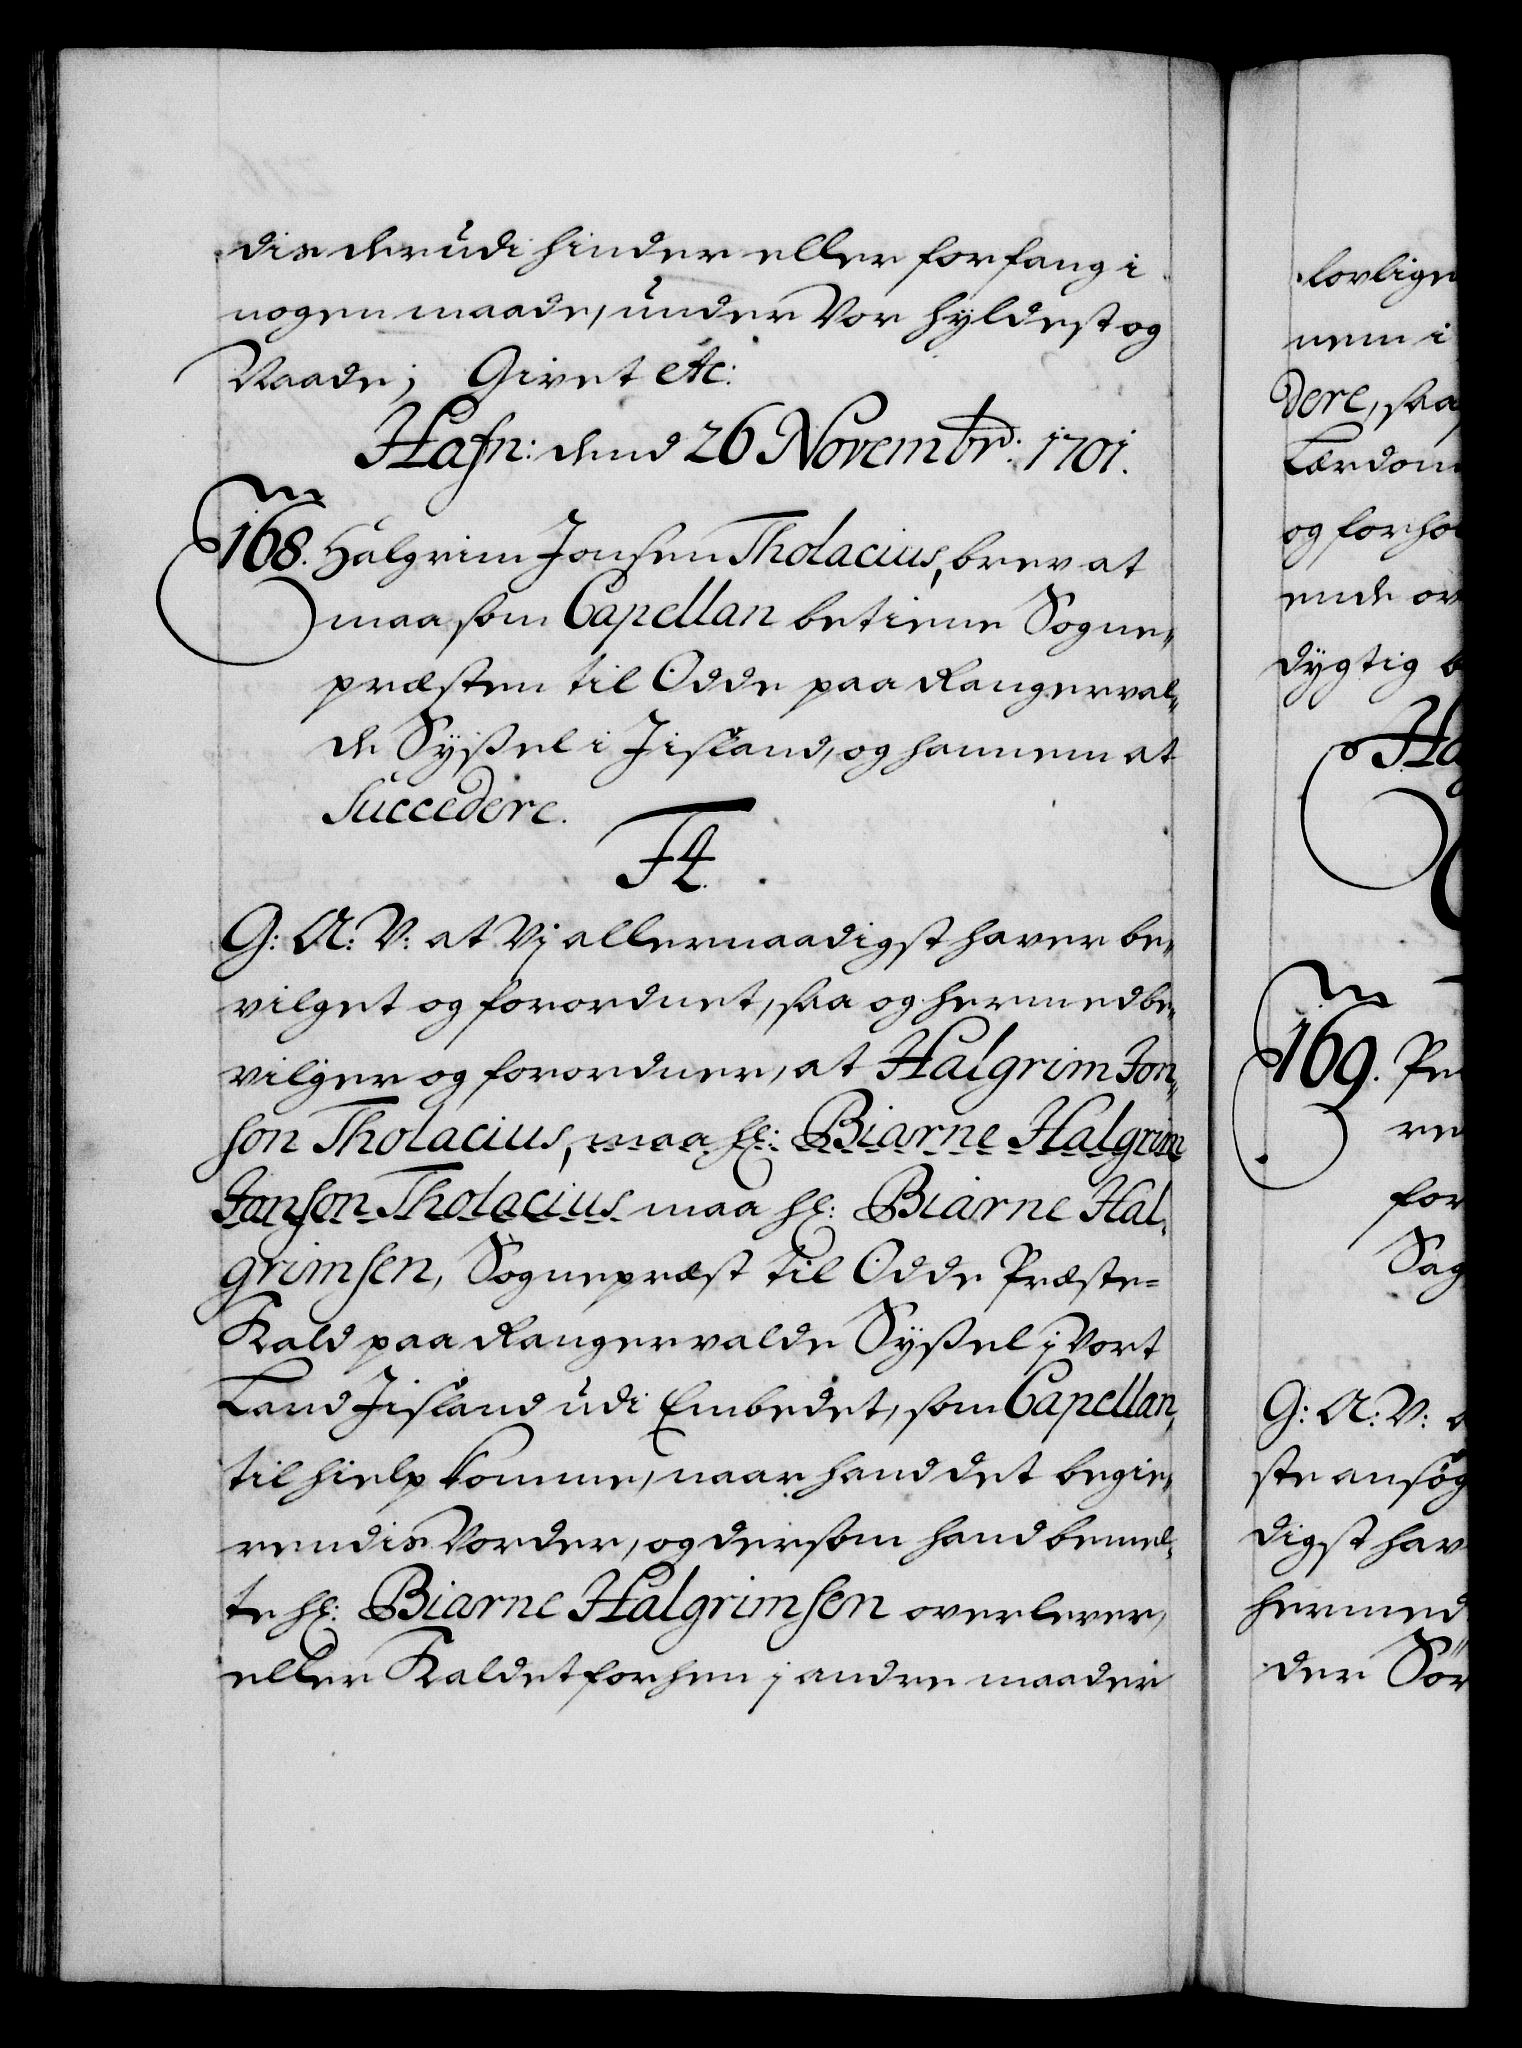 dis derudi hinder eller forfang i
nogen maade, under Vor hyldest og
Naade; Givet etc:
Hafn: dend 26 Novembr: 1701.
168. Halgrim Jonsen Tholacius, brev at
maa som Capellan betiene Sogne-
præsten til Odde paa Rangerval-
de Syßel i Jisland, og hannem at
succedere.
F4.
G: A: V: at Vj allernaadigst haver be-
vilget og forordnet, saa og hermed be-
vilger og forordner, at Halgrim Jon-
son Tholacius, maa hr: Biarne Halgrim
Jonson Tholacius maa hr: Biarne Hal-
grimsen, Sognepræst til Odde Præste-
Kald paa Rangervalde Syßel j Vort
Land Jisland udi Embedet, som Capellan,
til hielp komme, naar hand det begie-
rendis Vorder, og dersom hand bemel-
te hr: Biarne Halgrimsen overlever,
eller Kaldet forhen j andre maader
lovlige
nem i
dere, saa
Lærdom
og forho
ende ov
dygtig b
Ha
169. Pe
re
for
Sag
G: A: V: a
ste ansøg
digst hav
hermed
der Sör